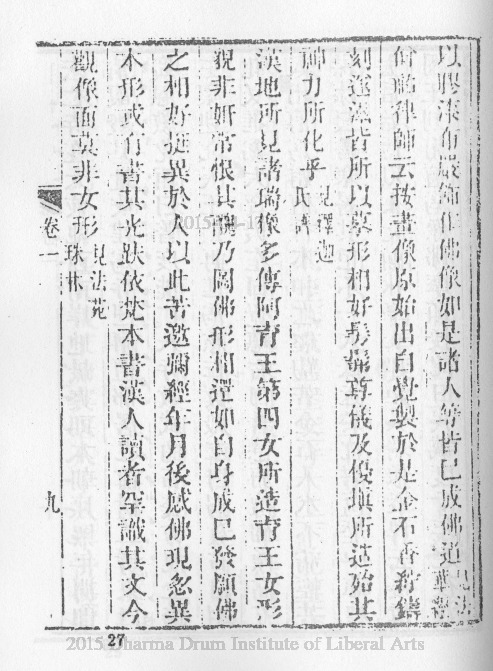 以膠漆布嚴飾作佛像如是諸人等皆已成佛道見法華經
僧祐律師云按畫像原始出自覺製於是金石香紵鑄
刻運滋皆所以摹形相好髣髴尊儀及優塡所造殆其
神力所化乎見釋迦氏譜
漢地所見諸瑞像多傳阿育王第四女所造育王女形
貌非妍常恨其醜乃圖佛形相還如自身成已發願佛
之相好挺異於人以此苦邀彌經年月後感佛現忽異
本形或有書其光趺依梵本書漢人讀者罕識其文今
觀像面莫非女形見法苑珠林
卷一 九
27
2015 Dharma Drum Institute of Liberal Arts